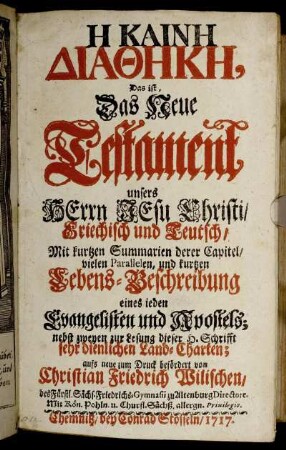 Η ΚΑΙΝΗ
ΔΙΑΘΗΚΗ,
Das ist,
Das Neue
Testament
unsers
HErrn JEsu Christi/
Griechisch und Teutsch/
Mit kurtzen Summarien derer Capitel/
vielen Parallelen, und kurtzen
Lebens-Beschreibung
eines ieden
Evangelisten und Apostels;
nebst zweyen zur Lesung dieser H. Schrifft
sehr dienlichen Land-Charten;
aufs neue zum Druck befördert von
Christian Friedrich Wilischen/
des Fürstl. Sächs. Friedrichs-Gymnasii zu Altenburg Directore.
Mit Kön. Pohln. u. Churfl. Sächß. allergn. Privilegio.
Chemnitz, bey Conrad Stösseln/ 1717.